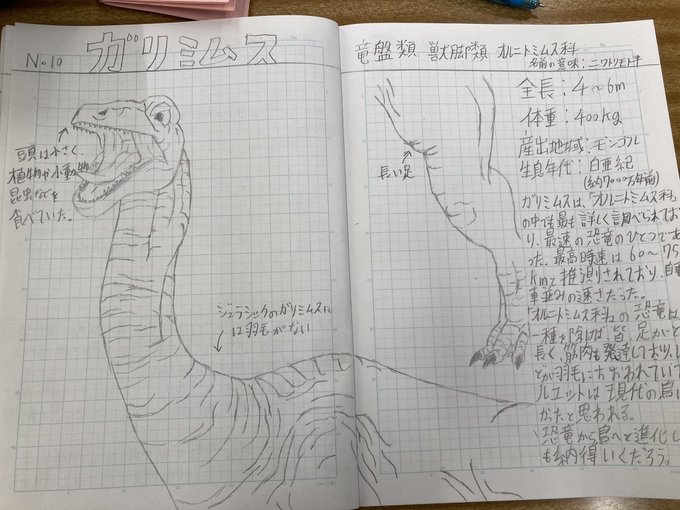 No.10 ガリミムス
頭は小さく、
植物や小動
昆虫などを
食べていた。
ジュラシックのガリミムスに
は羽毛がない
竜盤類 獣脚類 オルニトミムス科
名前の意味:ニワトリモドキ
長い足
全長:4〜6m
体重:400kg
産出地域:モンゴル
生息年代:白亜紀
(約7000万年前)
ガリミムスは、「オルニトミムス科」
の中でも最も詳しく調べられてお
り、最速の恐竜のひとつであ
った。最高時速は60〜75
kmと推測されており、自
車並みの速さだった。
「オルニトミムス科」の恐竜は
一種を除けば、皆、足がと
長く、筋肉も発達しており、
とが羽毛におおわれていて
ルエットは現代の鳥に
かったと思われる。
恐竜から鳥へと進化し
も納得いくだろう。